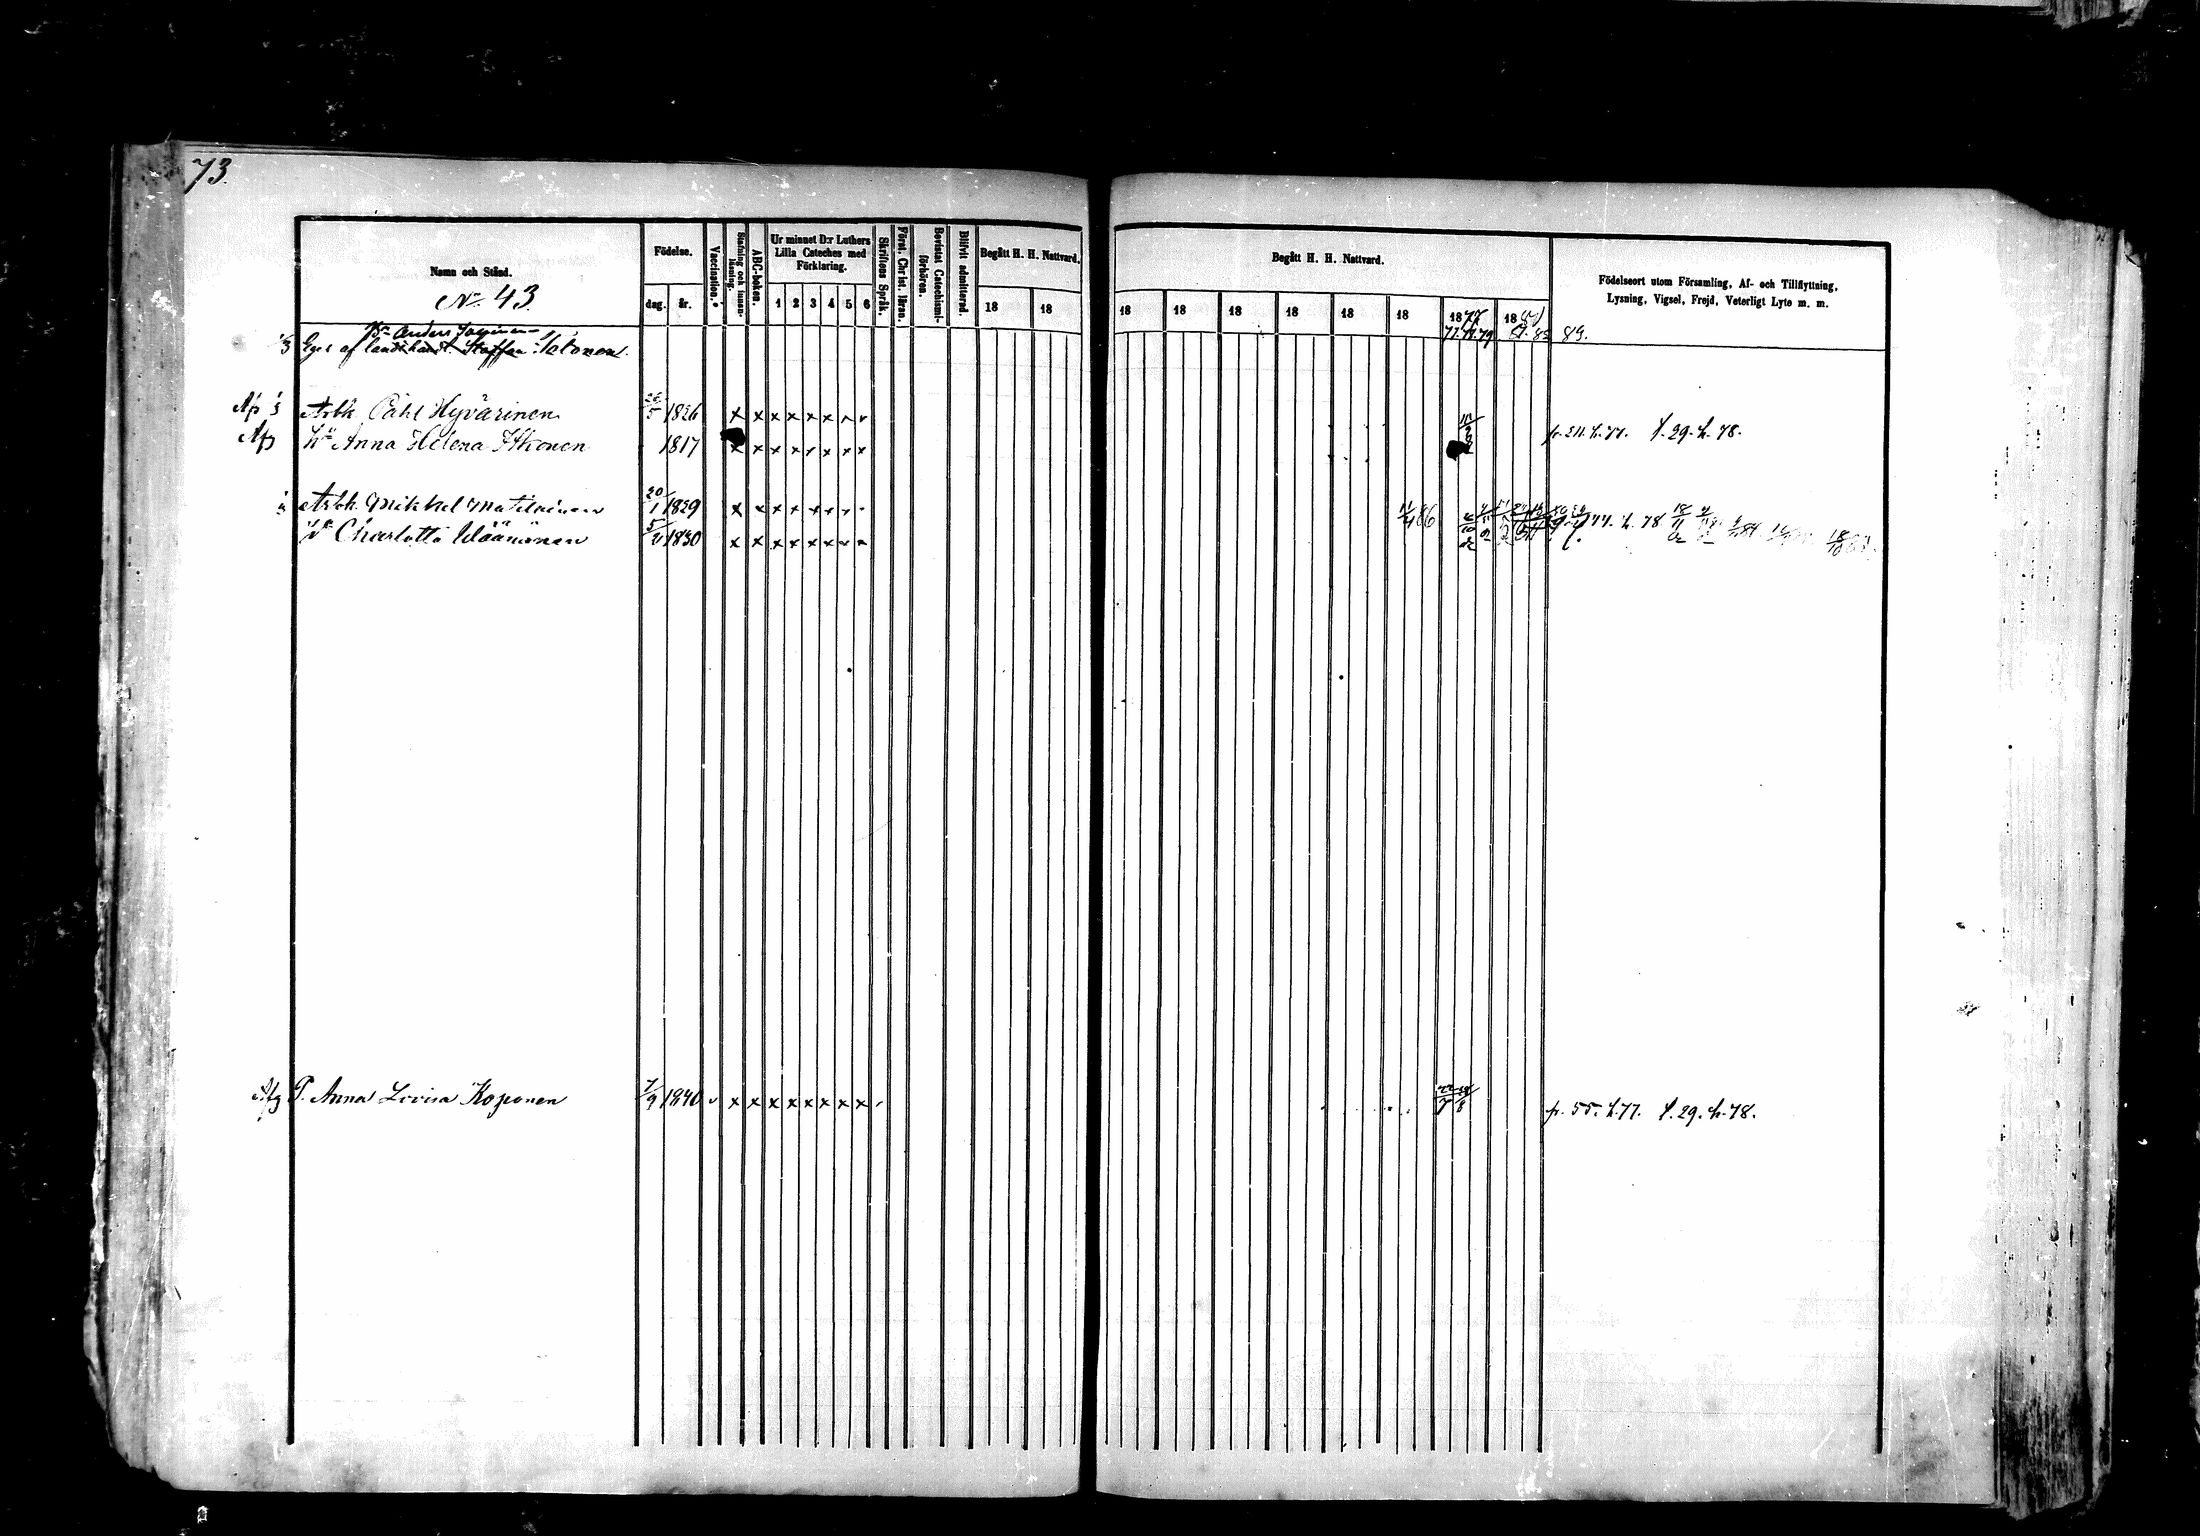 73.
Namn och Stånd.
Födelse.
dag. år.
Vaccination.
Stafning och innanläsning.
ABC-boken.
Ur minnet D:r Luthers Lilla Cateches med Förklaring.
1 2 3 4 5 6
Skriftens Språk.
Först. Christ. läran.
Bevistat Catechismiförhören.
Blifvit admitterad.
Begått H. H. Nattvard.
18 18
Begått H. H. Nattvard.
18 18 18 18 18 18 1877 18
77. 78. 79 83 89.
Födelseort utom Församling, Af- och Tillflyttning,
Lysning, Vigsel, Frejd, Veterligt Lyte m. m.
No 43.
Anders
Eges af landthandl. Staffan Salonen.
Arbk. Påhl Hyvärinen 1826 x x x x x x
fr. 211. h. 77. t. 29. h. 78.
Afg Hu Anna Helena Itkonen 1817 x x x x x x x x
Arbk. Mikkel Matilainen 20/1 1829 x x x x x x
77. h. 78
Hu Charlotta Wäänänen 1830 x x x x x x x x
Afg P. Anna Lovisa Koponen 7/9 1840 x x x x x x x x
fr. 55. h. 77. t. 29. h. 78.